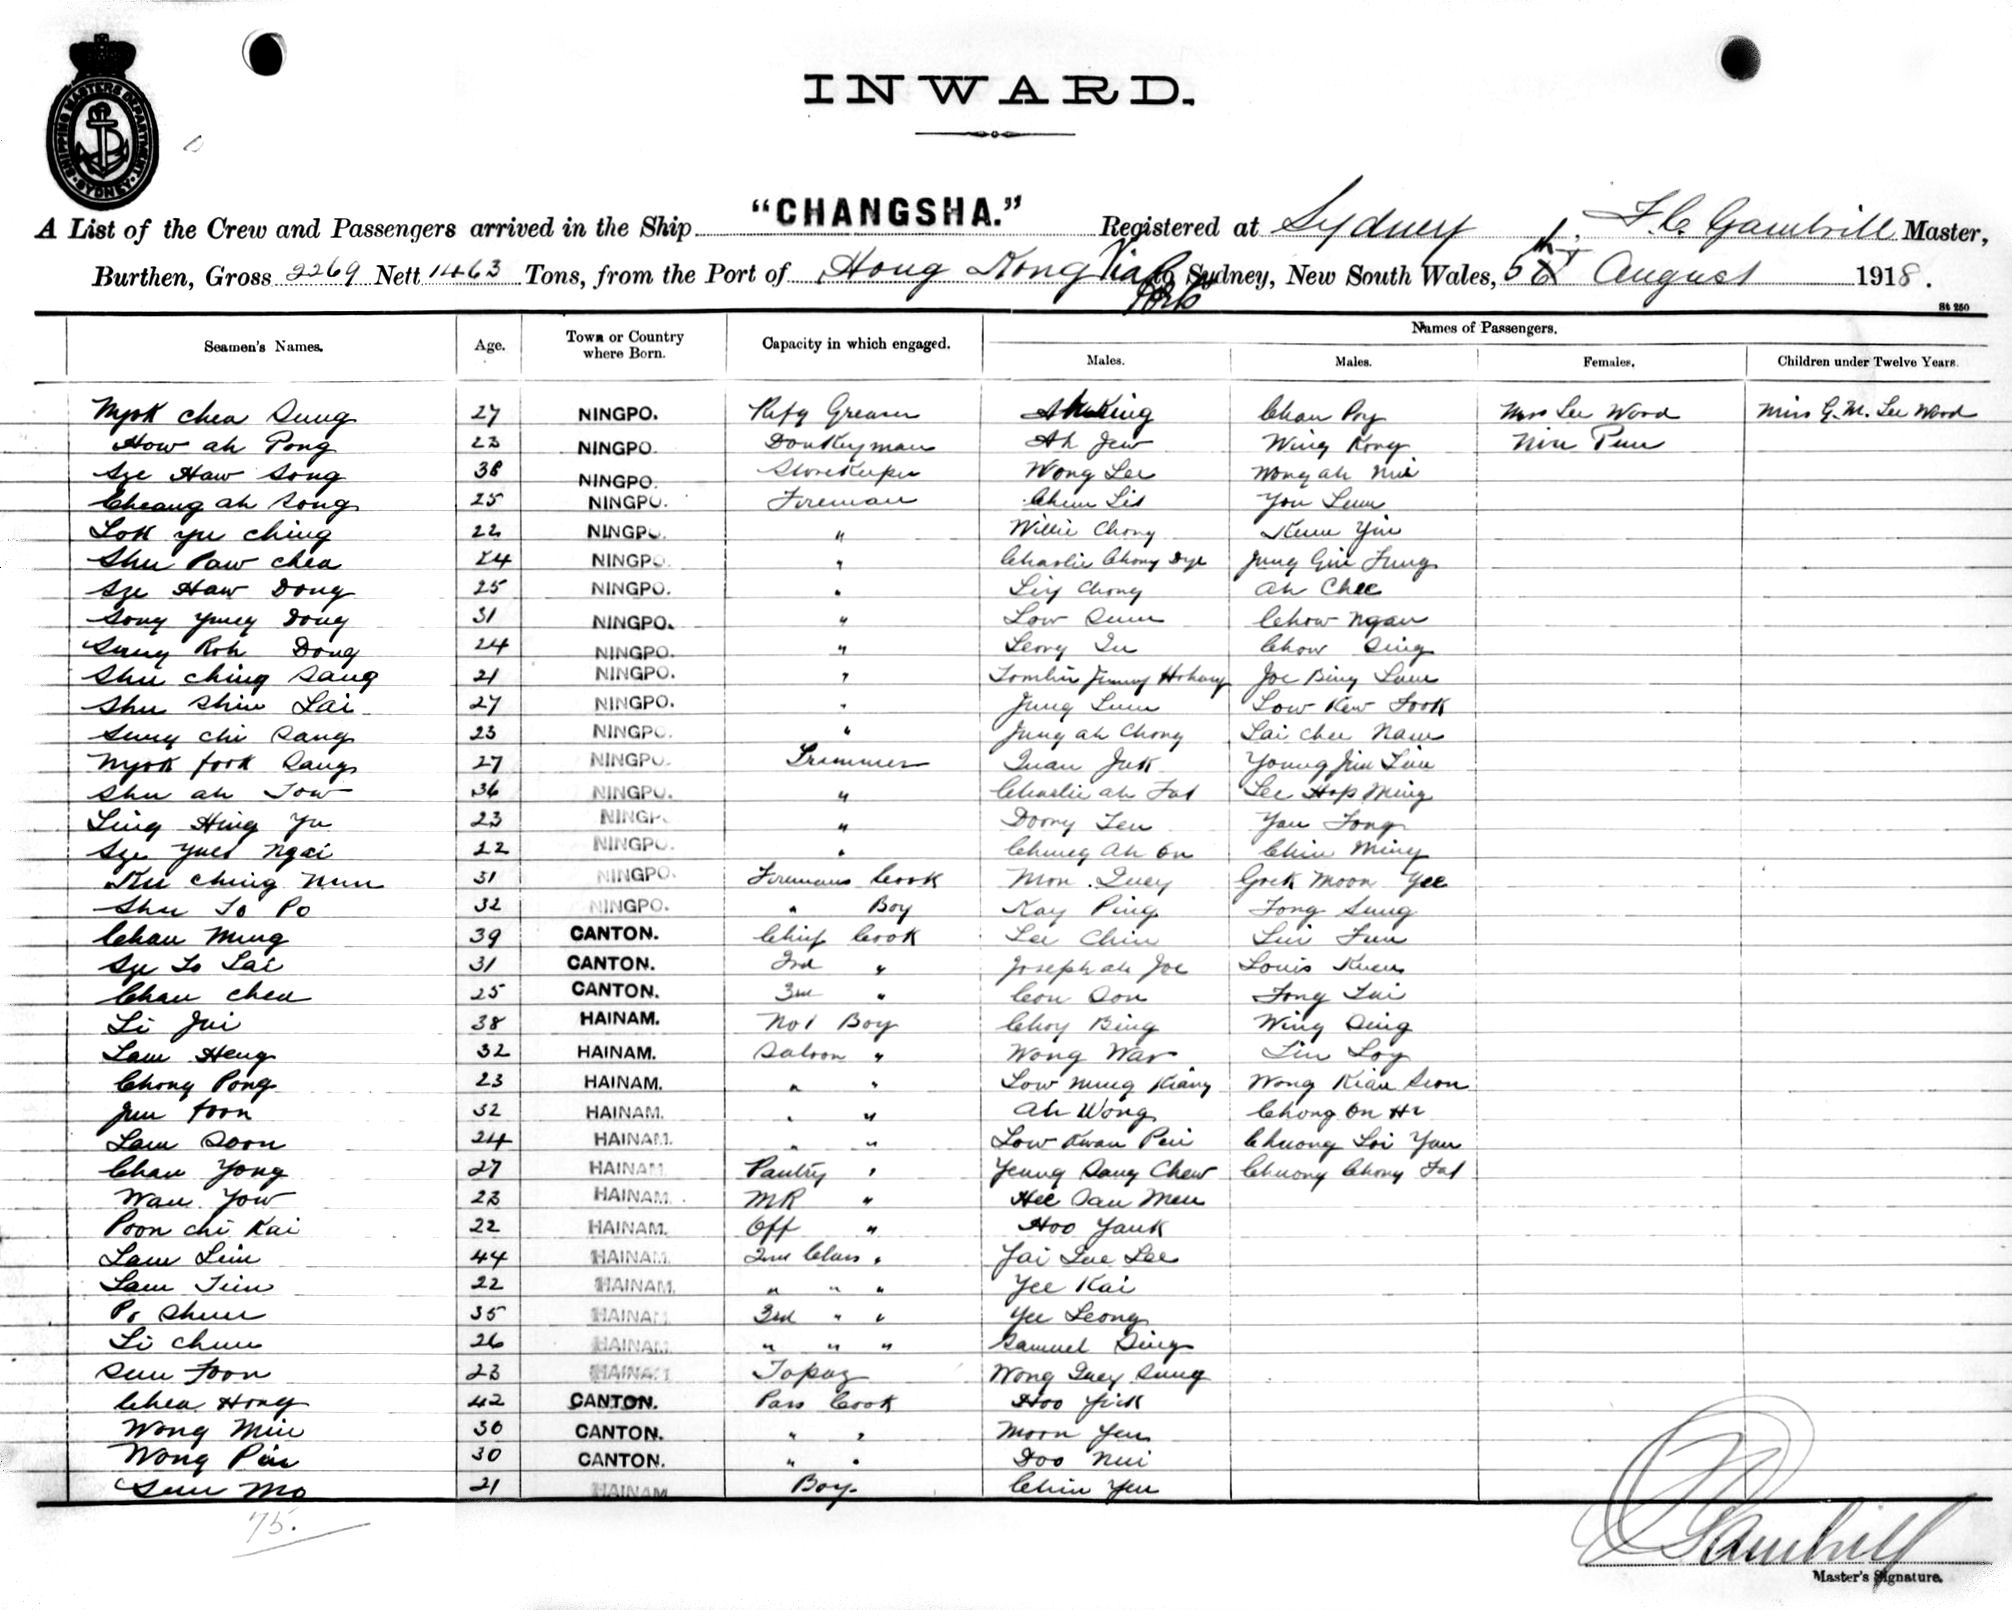 SHIPPING MASTERS DEPARTMENT. SYDNEY.
INWARD.
A List of the Crew and Passengers arrived in the Ship "CHANGSHA." Registered at Sydney, F. C. Gambrill Master,
Burthen, Gross 2269 Nett 1463 Tons, from the Port of Hong Kong Via Ports to Sydney, New South Wales, 5th August 1918.
St 250
Seamen's Names. Age. Town or Country where Born. Capacity in which engaged. Names of Passengers.
Males. Males. Females. Children under Twelve Years.
Nyok Chea Sung 27 NINGPO. Refg Greaser Ah King Chan Poy Mrs Lee Wood Miss G. M. Lee Wood
How ah Pong 23 NINGPO. Donkeyman Ah Jew Wing Kong
Sze Haw Song 38 NINGPO. Storekeeper Wong Lee Wong ah
Cheang ah Song 25 NINGPO. Fireman You Lum
Lok yu ching 22 NINGPO. " Willie Chong Kum Yin
Shu Paw chea 24 NINGPO. " Charlie Chong Dye Jung Gin Fung
Sze Haw Dong 25 NINGPO. " Chong Ah Chee
Song Yung Dong 31 NINGPO. " Low Sum Chow Ngan
Sung Roh Dong 24 NINGPO. " Leong Chow Sing
Shu ching Sang 21 NINGPO. " Jimmy Joe Bing Lum
Shu Shin Lai 27 NINGPO. " Jung Lum Low Kew Fook
Sung chi Sang 23 NINGPO. " Jung ah Chong Lai Chee Nam
Nyok fook Sang 27 NINGPO. Trimmer Quan Juk Young Jin Lim
Shu ah Tow 36 NINGPO. " Charlie ah Fat Lee Hop Ming
Ling Hing Yu 23 NINGPO. " Yau Fong
Sze Yuet Ngai 22 NINGPO. " Chung Ah On Chin Ming
Ku Ching Nun 31 NINGPO. Firemans Cook Mon Quey Gock Moon Yee
Shu To Po 32 NINGPO. " Boy Kay Ping Fong Sung
Chau Ming 39 CANTON. Chief Cook Lee Chin Lui Fun
Sze To Lai 31 CANTON. 2nd " Joseph ah Joe Louis Kuen
Chau Chea 25 CANTON. 3rd " Con Son Fong Lui
Li Jui 38 HAINAM. No 1 Boy Choy Bing Wing Sing
Lam Heng 32 HAINAM. Saloon " Wong War Lin Loy
Chong Pong 23 HAINAM. " " Low Ming Kiang Wong Kian Seon
Jim foon 32 HAINAM. " " Ah Wong Chong On Hi
Lam Soon 24 HAINAM. " " Low Kwan Pui Chuong Loi Yau
Chau Yong 27 HAINAM. Pantry " Yeung Sang Chew Chuong Chong Fat
Wan Yow 23 HAINAM. MR " Hee San Men
Poon chi Kai 22 HAINAM. Off " Hoo Yank
Lam Lim 44 HAINAM. 2nd Class " Jai Lee
Lam Tim 22 HAINAM. " " " Yee Kai
Po Shun 35 HAINAM 3rd " " Yee Leong
Li Chun 26 HAINAM " " " Samuel Sing
Sun Foon 23 HAINAM Topaz Wong Quey Sung
Chea Hong 42 CANTON. Pass Cook Hoo Yick
Wong Min 30 CANTON. " " Moon Yen
Wong Pui 30 CANTON. " " Doo Nui
Sun Mo 21 HAINAM Boy Chin Yen
75.
Gambrill
Master's Signature.